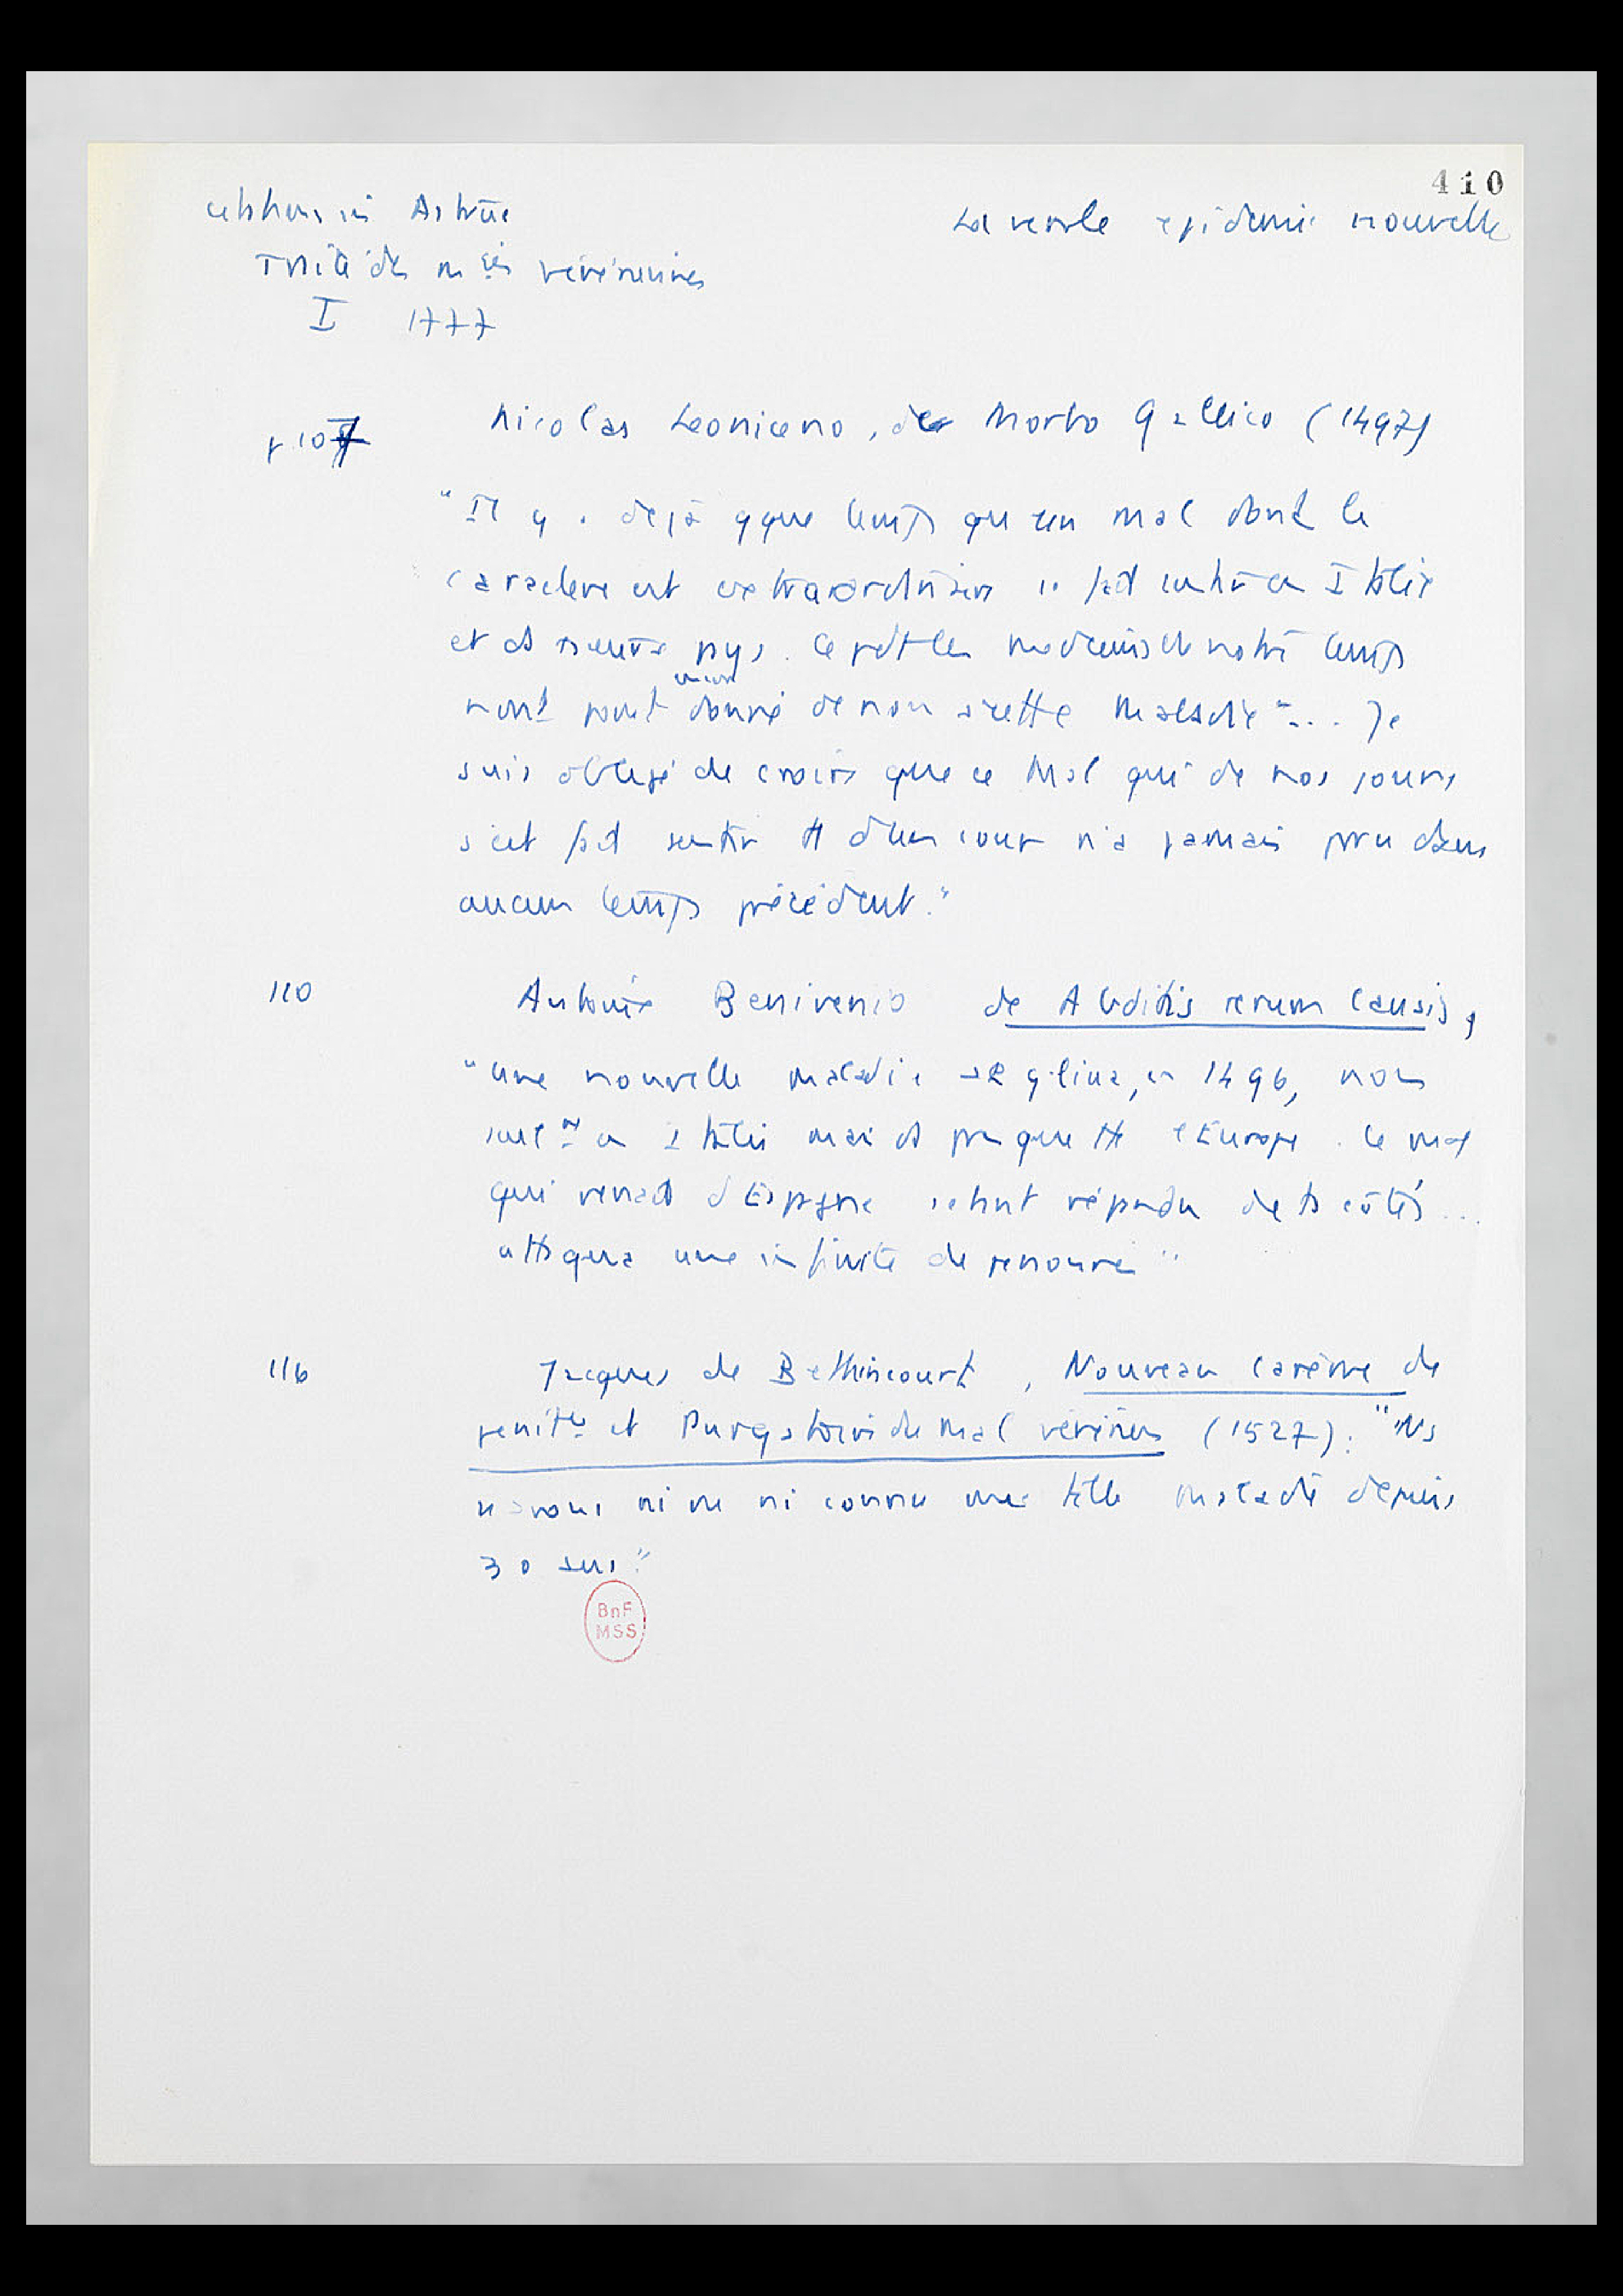 410
citations in Astruc
La verole epidemie nouvelle
Traité des mies vénériennes
I 1777
p 107 Nicolas Leoniceno, de Morbo Gallico (1497)
"Il y a déjà qque temps qu'un mal dont le
caractère est extraordinaire s'est fait sentir en Italie
et ds pys. Cepdt les medecins de notre temps
n'ont point encore donné de nom à cette maladie"... Je
suis obligé de croire que ce mal qui de nos jours
s'est fait sentir tt d'un coup n'a jamais paru dans
aucun temps précédent."
110 Antoine Benivenio de Abditis rerum Causis,
"une nouvelle maladie se glissa, en 1496, non
seulnt en Italie mais ds presque tte l'Europe. Le mal
qui venait d'Espagne s'etant répandu de ts côtés...
attaqua une infinité de personnes"
116 Jacques de Bethincourt, Nouveau Carème de
penitce et Purgatoire du Mal vénérien (1527): "Ns
n'avons ni vu ni connu une telle maladie depuis
30 ans."
BnF
MSS